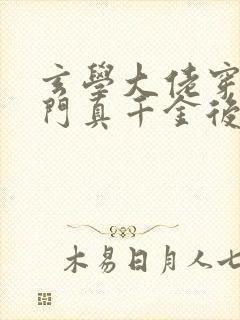 玄學大佬穿
門真千金後
木易日月人七